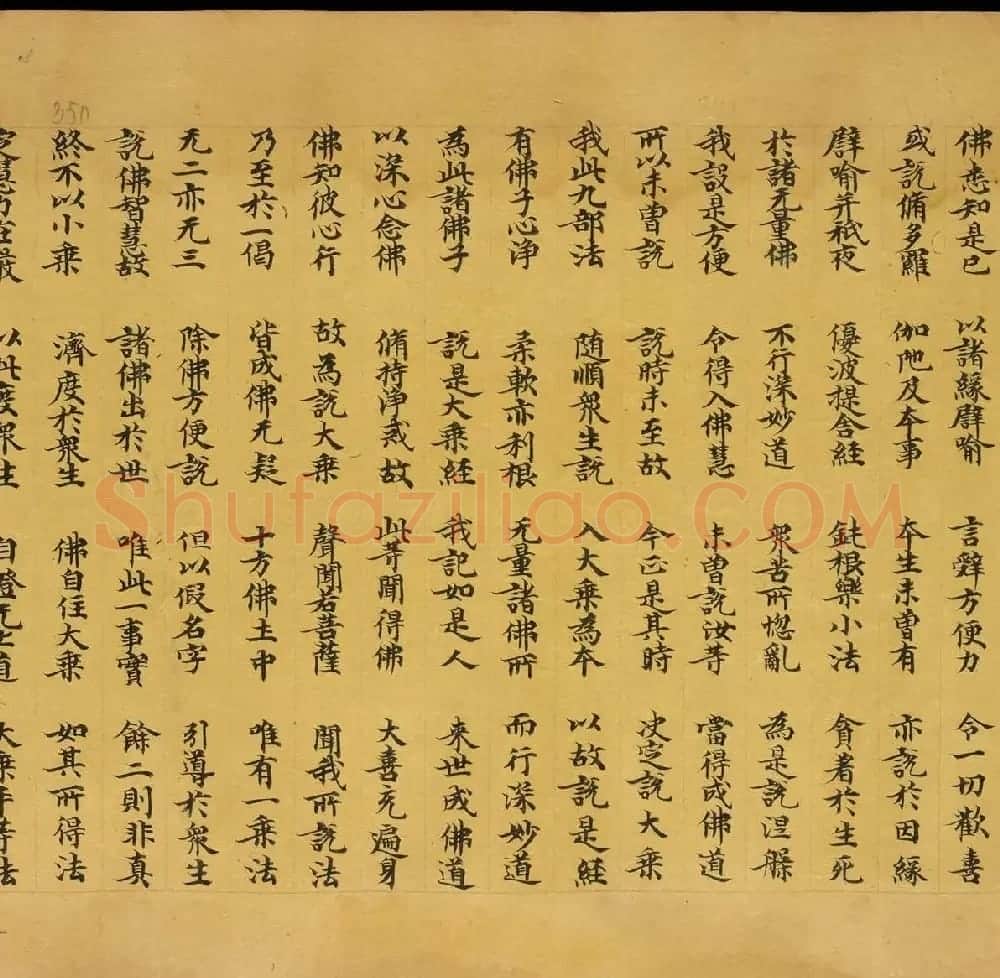 350
佛悉知是已 以諸緣譬喻 言辭方便力 令一切歡喜
或說脩多羅 伽陁及本事 本生未曾有 亦說於因緣
譬喻并祇夜 優波提舍經 鈍根樂小法 貪著於生死
於諸无量佛 不行深妙道 眾苦所惱亂 為是說涅槃
我設是方便 令得入佛慧 未曾說汝等 當得成佛道
所以未曾說 說時未至故 今正是其時 決定說大乘
我此九部法 隨順眾生說 入大乘為本 以故說是經
有佛子心淨 柔軟亦利根 无量諸佛所 而行深妙道
為此諸佛子 說是大乘經 我記如是人 來世成佛道
以深心念佛 脩持淨戒故 此等聞得佛 大喜充遍身
佛知彼心行 故為說大乘 聲聞若菩薩 聞我所說法
乃至於一偈 皆成佛无疑 十方佛土中 唯有一乘法
无二亦无三 除佛方便說 但以假名字 引導於眾生
說佛智慧故 諸佛出於世 唯此一事實 餘二則非真
終不以小乘 濟度於眾生 佛自住大乘 如其所得法
定慧力莊嚴 以此度眾生 自證无上道 大乘平等法
Shufaziliao.COM